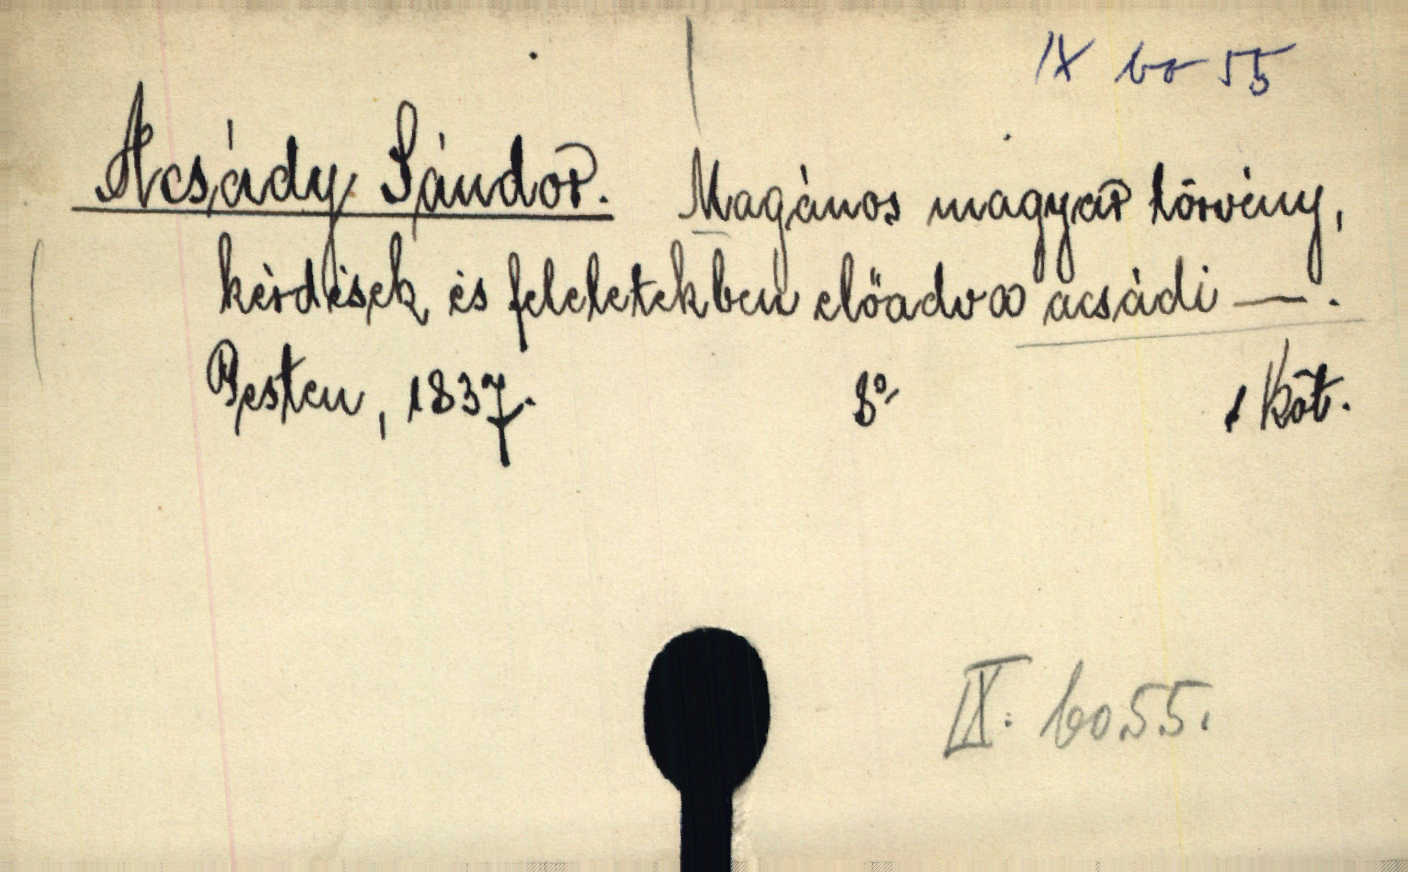 IX bo 55
Acsády Sándor. Magános magyar törvény,
kérdések és feleletekben előadva acsádi —.
Pesten, 1837. 8° 1 Köt.
IX. bo 55.